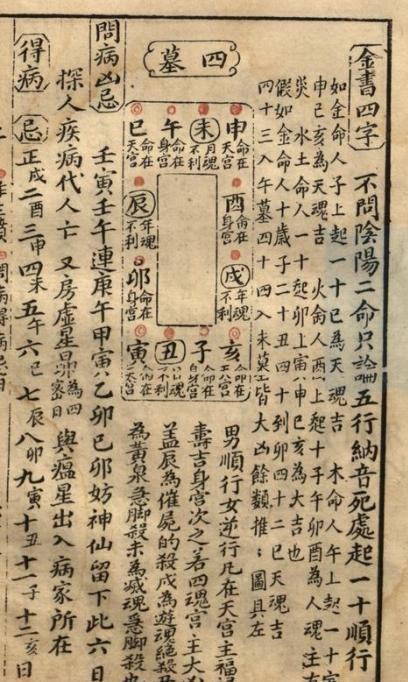 金書四字
不問陰陽二命只論五行納音死處起一十順行
如金命人子上起一十巳為天魂吉 木命人午上起一十
申巳亥為天魂吉 火命人酉上起十子午卯酉為人魂
炎水土命人一十起卯上寅申巳亥為大吉也
假如金命人十歲子二十丑四十到卯四十二巳天魂吉
四十三入午墓四十四入未墓皆大凶餘類推圖具左
四墓
申 命在天宮
未 月魂不利
午 命在
巳 命在天宮
酉 命在身宮
辰 年魂不利
戌 年魂不利
卯 命在身宮
亥 命在天宮
子 命在身宮
丑 魂不利
寅 命在天宮
男順行女逆行凡在天宮主福
壽吉身宮次之若四魂宮主大凶
蓋辰為催屍的殺戌為遊魂絕殺
為黃泉急脚殺未為滅魂急脚殺
問病凶忌
壬寅壬午連庚午甲寅乙卯巳卯妨神仙留下此六日
探人疾病代人亡 又房虛星昴為四密日 與瘟星出入病家所在
得病
忌 正戌二酉三申四未五午六巳七辰八卯九寅十丑十一子十二亥日